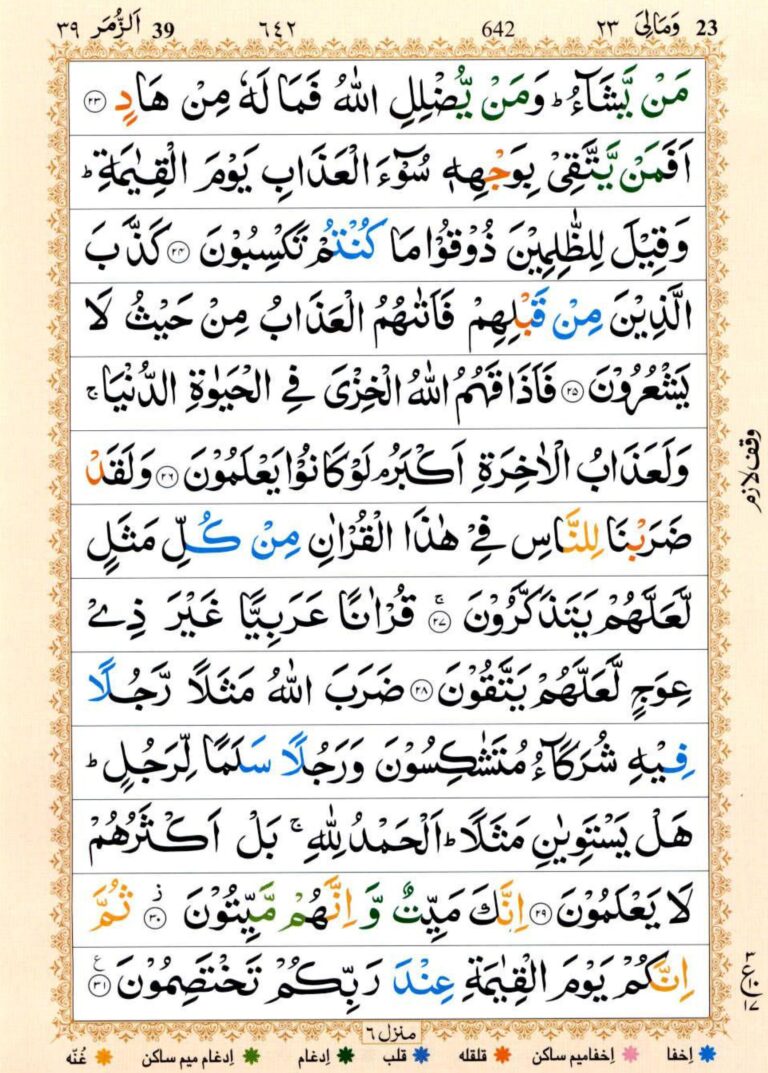 23 وَمَالِيَ ٢٣ 642 ٦٤٢ 39 اَلزُّمَر ٣٩
مَنْ يَّشَآءُ ؕ وَمَنْ يُّضْلِلِ اللّٰهُ فَمَا لَهٗ مِنْ هَادٍ ﴿۲۳﴾
اَفَمَنْ يَّتَّقِىْ بِوَجْهِهٖ سُوْٓءَ الْعَذَابِ يَوْمَ الْقِيٰمَةِ ؕ
وَقِيْلَ لِلظّٰلِمِيْنَ ذُوْقُوْا مَا كُنْتُمْ تَكْسِبُوْنَ ﴿۲۴﴾ كَذَّبَ
الَّذِيْنَ مِنْ قَبْلِهِمْ فَاَتٰٮهُمُ الْعَذَابُ مِنْ حَيْثُ لَا
يَشْعُرُوْنَ ﴿۲۵﴾ فَاَذَاقَهُمُ اللّٰهُ الْخِزْىَ فِى الْحَيٰوةِ الدُّنْيَا ۚ
وَلَعَذَابُ الْاٰخِرَةِ اَكْبَرُ ۘ لَوْ كَانُوْا يَعْلَمُوْنَ ﴿۲۶﴾ وَلَقَدْ
وقف لازم
ضَرَبْنَا لِلنَّاسِ فِىْ هٰذَا الْقُرْاٰنِ مِنْ كُلِّ مَثَلٍ
لَّعَلَّهُمْ يَتَذَكَّرُوْنَ ۚ ﴿۲۷﴾ قُرْاٰنًا عَرَبِيًّا غَيْرَ ذِىْ
عِوَجٍ لَّعَلَّهُمْ يَتَّقُوْنَ ﴿۲۸﴾ ضَرَبَ اللّٰهُ مَثَلًا رَّجُلًا
فِيْهِ شُرَكَآءُ مُتَشٰكِسُوْنَ وَرَجُلًا سَلَمًا لِّرَجُلٍ ؕ
هَلْ يَسْتَوِيٰنِ مَثَلًا ؕ اَلْحَمْدُ لِلّٰهِ ۚ بَلْ اَكْثَرُهُمْ
لَا يَعْلَمُوْنَ ﴿۲۹﴾ اِنَّكَ مَيِّتٌ وَّاِنَّهُمْ مَّيِّتُوْنَ ز ﴿۳۰﴾ ثُمَّ
اِنَّكُمْ يَوْمَ الْقِيٰمَةِ عِنْدَ رَبِّكُمْ تَخْتَصِمُوْنَ ﴿۳۱﴾ ع
٣ ع ١٠ ١٧
منزل ٦
اِخفا اِخفامیم ساکن قلقله قلب اِدغام اِدغام میم ساکن غُنّه